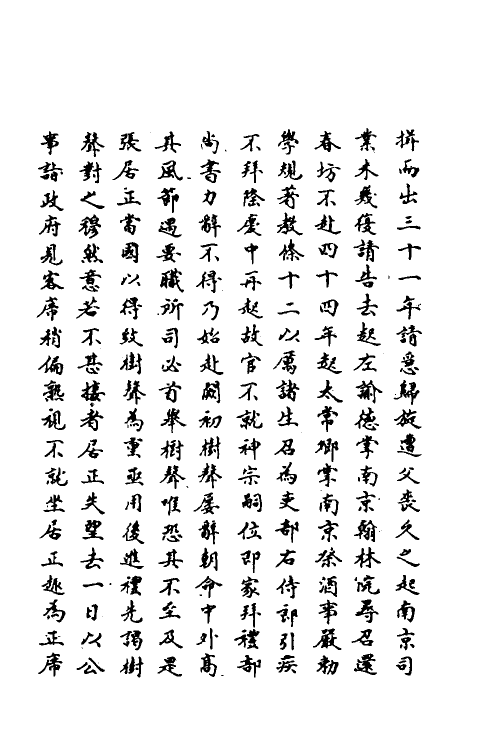 揖而出三十一年請急歸旋遭父喪久之起南京司
業未幾復請告去起左諭德掌南京翰林院尋召還
春坊不赴四十四年起太常卿掌南京祭酒事嚴勑
學規著教條十二以厲諸生召為吏部右侍郎引疾
不拜隆慶中再起故官不就神宗嗣位即家拜禮部
尚書力辭不得乃始赴闕初樹聲屢辭朝命中外髙
其風節遇要職所司必首舉樹聲唯恐其不至及是
張居正當國以得致樹聲為重亟用後進禮先謁樹
聲對之穆然意若不甚接者居正失望去一日以公
事詣政府見客席稍偏熟視不就坐居正趣為正席